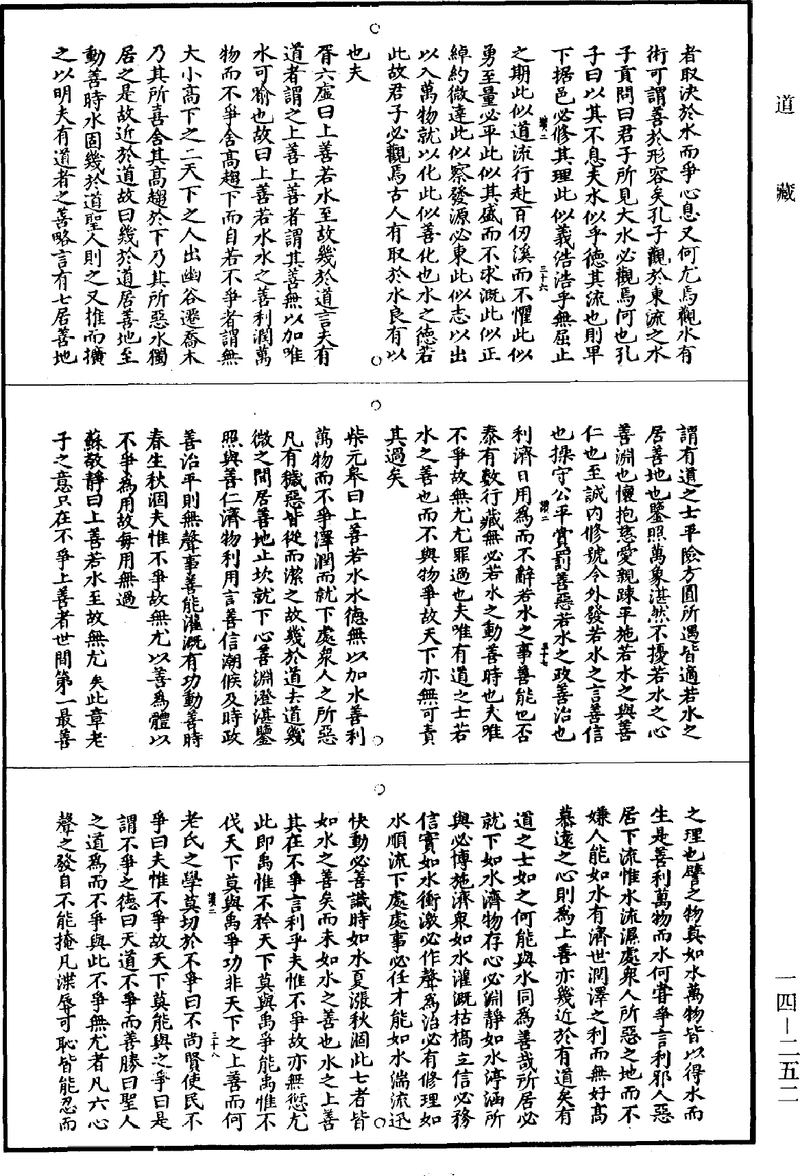 道藏
者取決於水而爭心息又何尤焉觀水有
術可謂善於形容矣孔子觀於東流之水
子貢問曰君子所見大水必觀焉何也孔
子曰以其不息夫水似乎德其流也則卑
下掘邑必修其理此似義浩浩乎無屈止
之期此似道流行赴百仞溪而不懼此似
勇至量必平此似其盛而不求溉此似正
綽約微達此似察發源必東此似志以出
以入萬物就以化此似善化也水之德若
此故君子必觀焉古人有取於水良有以
也夫
胥六虛曰上善若水至故幾於道言夫有
道者謂之上善上善者謂其善無以加唯
水可喻也故曰上善若水水之善利潤萬
物而不爭舍高趨下而自若不爭者謂無
大小高下之二天下之人出幽谷遷喬木
乃其所喜舍其高趨於下乃其所惡水獨
居之是故近於道故曰幾於道居善地至
動善時水固幾於道聖人則之又推而擴
之以明夫有道者之善略言有七居善地
謂有道之士平險方圓所遇皆適若水之
居善地也鑒照萬象湛然不擾若水之心
善淵也懷抱慈愛親疎平施若水之與善
仁也至誠內修號令外發若水之言善信
也操守公平賞罰善惡若水之政善治也
利濟日用為而不辭若水之事善能也否
泰有數行藏無必若水之動善時也夫唯
不爭故無尤尤罪過也夫唯有道之士若
水之善也而不與物爭故天下亦無可責
其過矣
柴元皐曰上善若水水德無以加水善利
萬物而不爭澤潤而就下處衆人之所惡
凡有穢惡皆從而潔之故幾於道去道幾
微之間居善地止坎就下心善淵澄湛鑒
照與善仁濟物利用言善信潮候及時政
善治平則無聲事善能灌溉有功動善時
春生秋涸夫惟不爭故無尤以善為體以
不爭為用故每用無過
蘇敬靜曰上善若水至故無尤矣此章老
子之意只在不爭上善者世間第一最善
之理也譬之物真如水萬物皆以得水而
生是善利萬物而水何嘗爭言利邪人惡
居下流惟水流濕處衆人所惡之地而不
嫌人能如水有濟世潤澤之利而無好高
慕遠之心則為上善亦幾近於有道矣有
道之士如之何能與水同為善哉所居必
就下如水濟物存心必淵靜如水渟涵所
與必博施濟衆如水灌溉枯槁立信必務
信實如水衝激必作聲為治必有修理如
水順流下處處事必任才能如水湍流迅
快動必善識時如水夏漲秋涸此七者皆
如水之善矣而未如水之善也水之上善
其在不爭言利乎夫惟不爭故亦無愆尤
此即禹惟不矜天下莫與禹爭能禹惟不
伐天下莫與禹爭功非天下之上善而何
老氏之學莫切於不爭曰不尚賢使民不
爭曰夫惟不爭故天下莫能與之爭曰是
謂不爭之德曰天道不爭而善勝曰聖人
之道為而不爭與此不爭無尤者凡六心
聲之發自不能掩凡渫辱可恥皆能忍而
讚二
三十六
讚二
三十七
讚二
三十八
一四—二五二